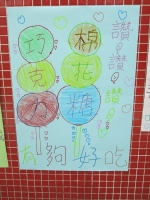 巧克力
棉花糖
讚讚讚
有夠好吃